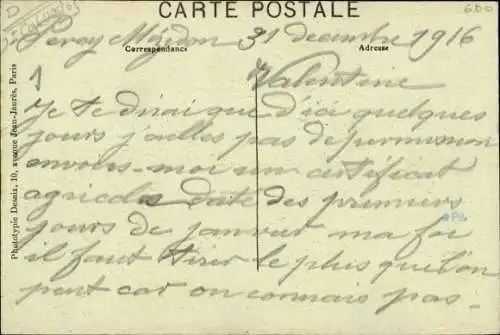 CARTE POSTALE
Percy Mézidon 31 decembre 1916
Correspondance Adresse
Valentine
1
Je te dirai que d'ici quelques
jours j'aelles pas de permission
envois-moi un certificat
agricole date des premiers
jours de janvier ma foi
il faut tirer le plus que l'on
peut car on connais pas-
Phototypie Desaix, 10, avenue Jean-Jaurès, Paris
6.00